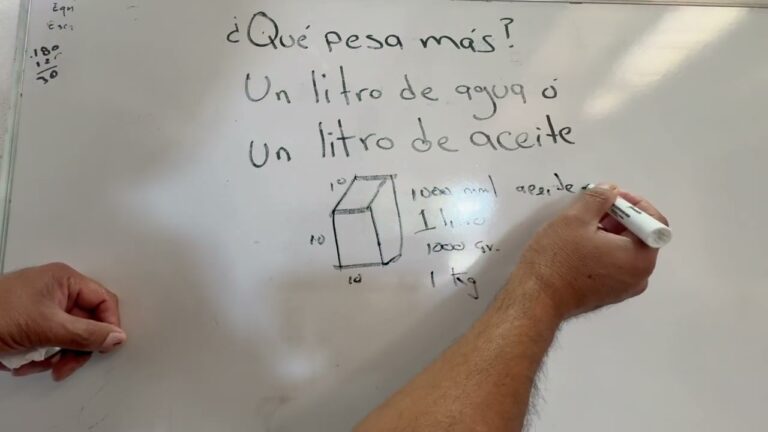 Eqn
Esc:
180
30
¿Qué pesa más?
Un litro de agua ó
Un litro de aceite
10
1000 mml aceite
10
1 litro
1000 gr.
10
1 kg